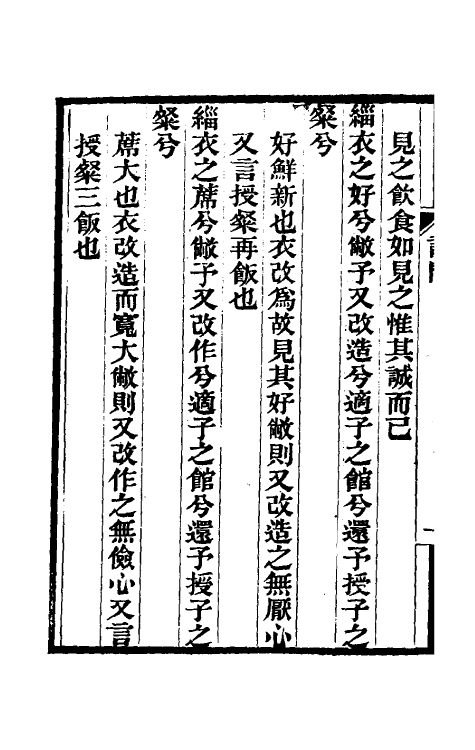 見之飲食如見之惟其誠而已
緇衣之好兮敝予又改造兮適子之館兮還予授子之
粲兮
好鮮新也衣改爲故見其好敝則又改造之無厭心
又言授粲再飯也
緇衣之蓆兮敝予又改作兮適子之館兮還予授子之
粲兮
蓆大也衣改造而寬大敝則又改作之無儉心又言
授粲三飯也